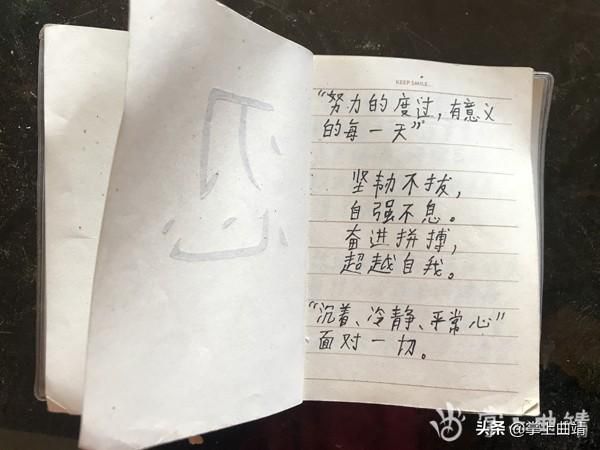 忍
KEEP SMILE
“努力的度过，有意义
的每一天”
坚韧不拔，
自强不息。
奋进拼搏，
超越自我。
“沉着、冷静、平常心”
面对一切。
掌上曲靖
头条 @掌上曲靖